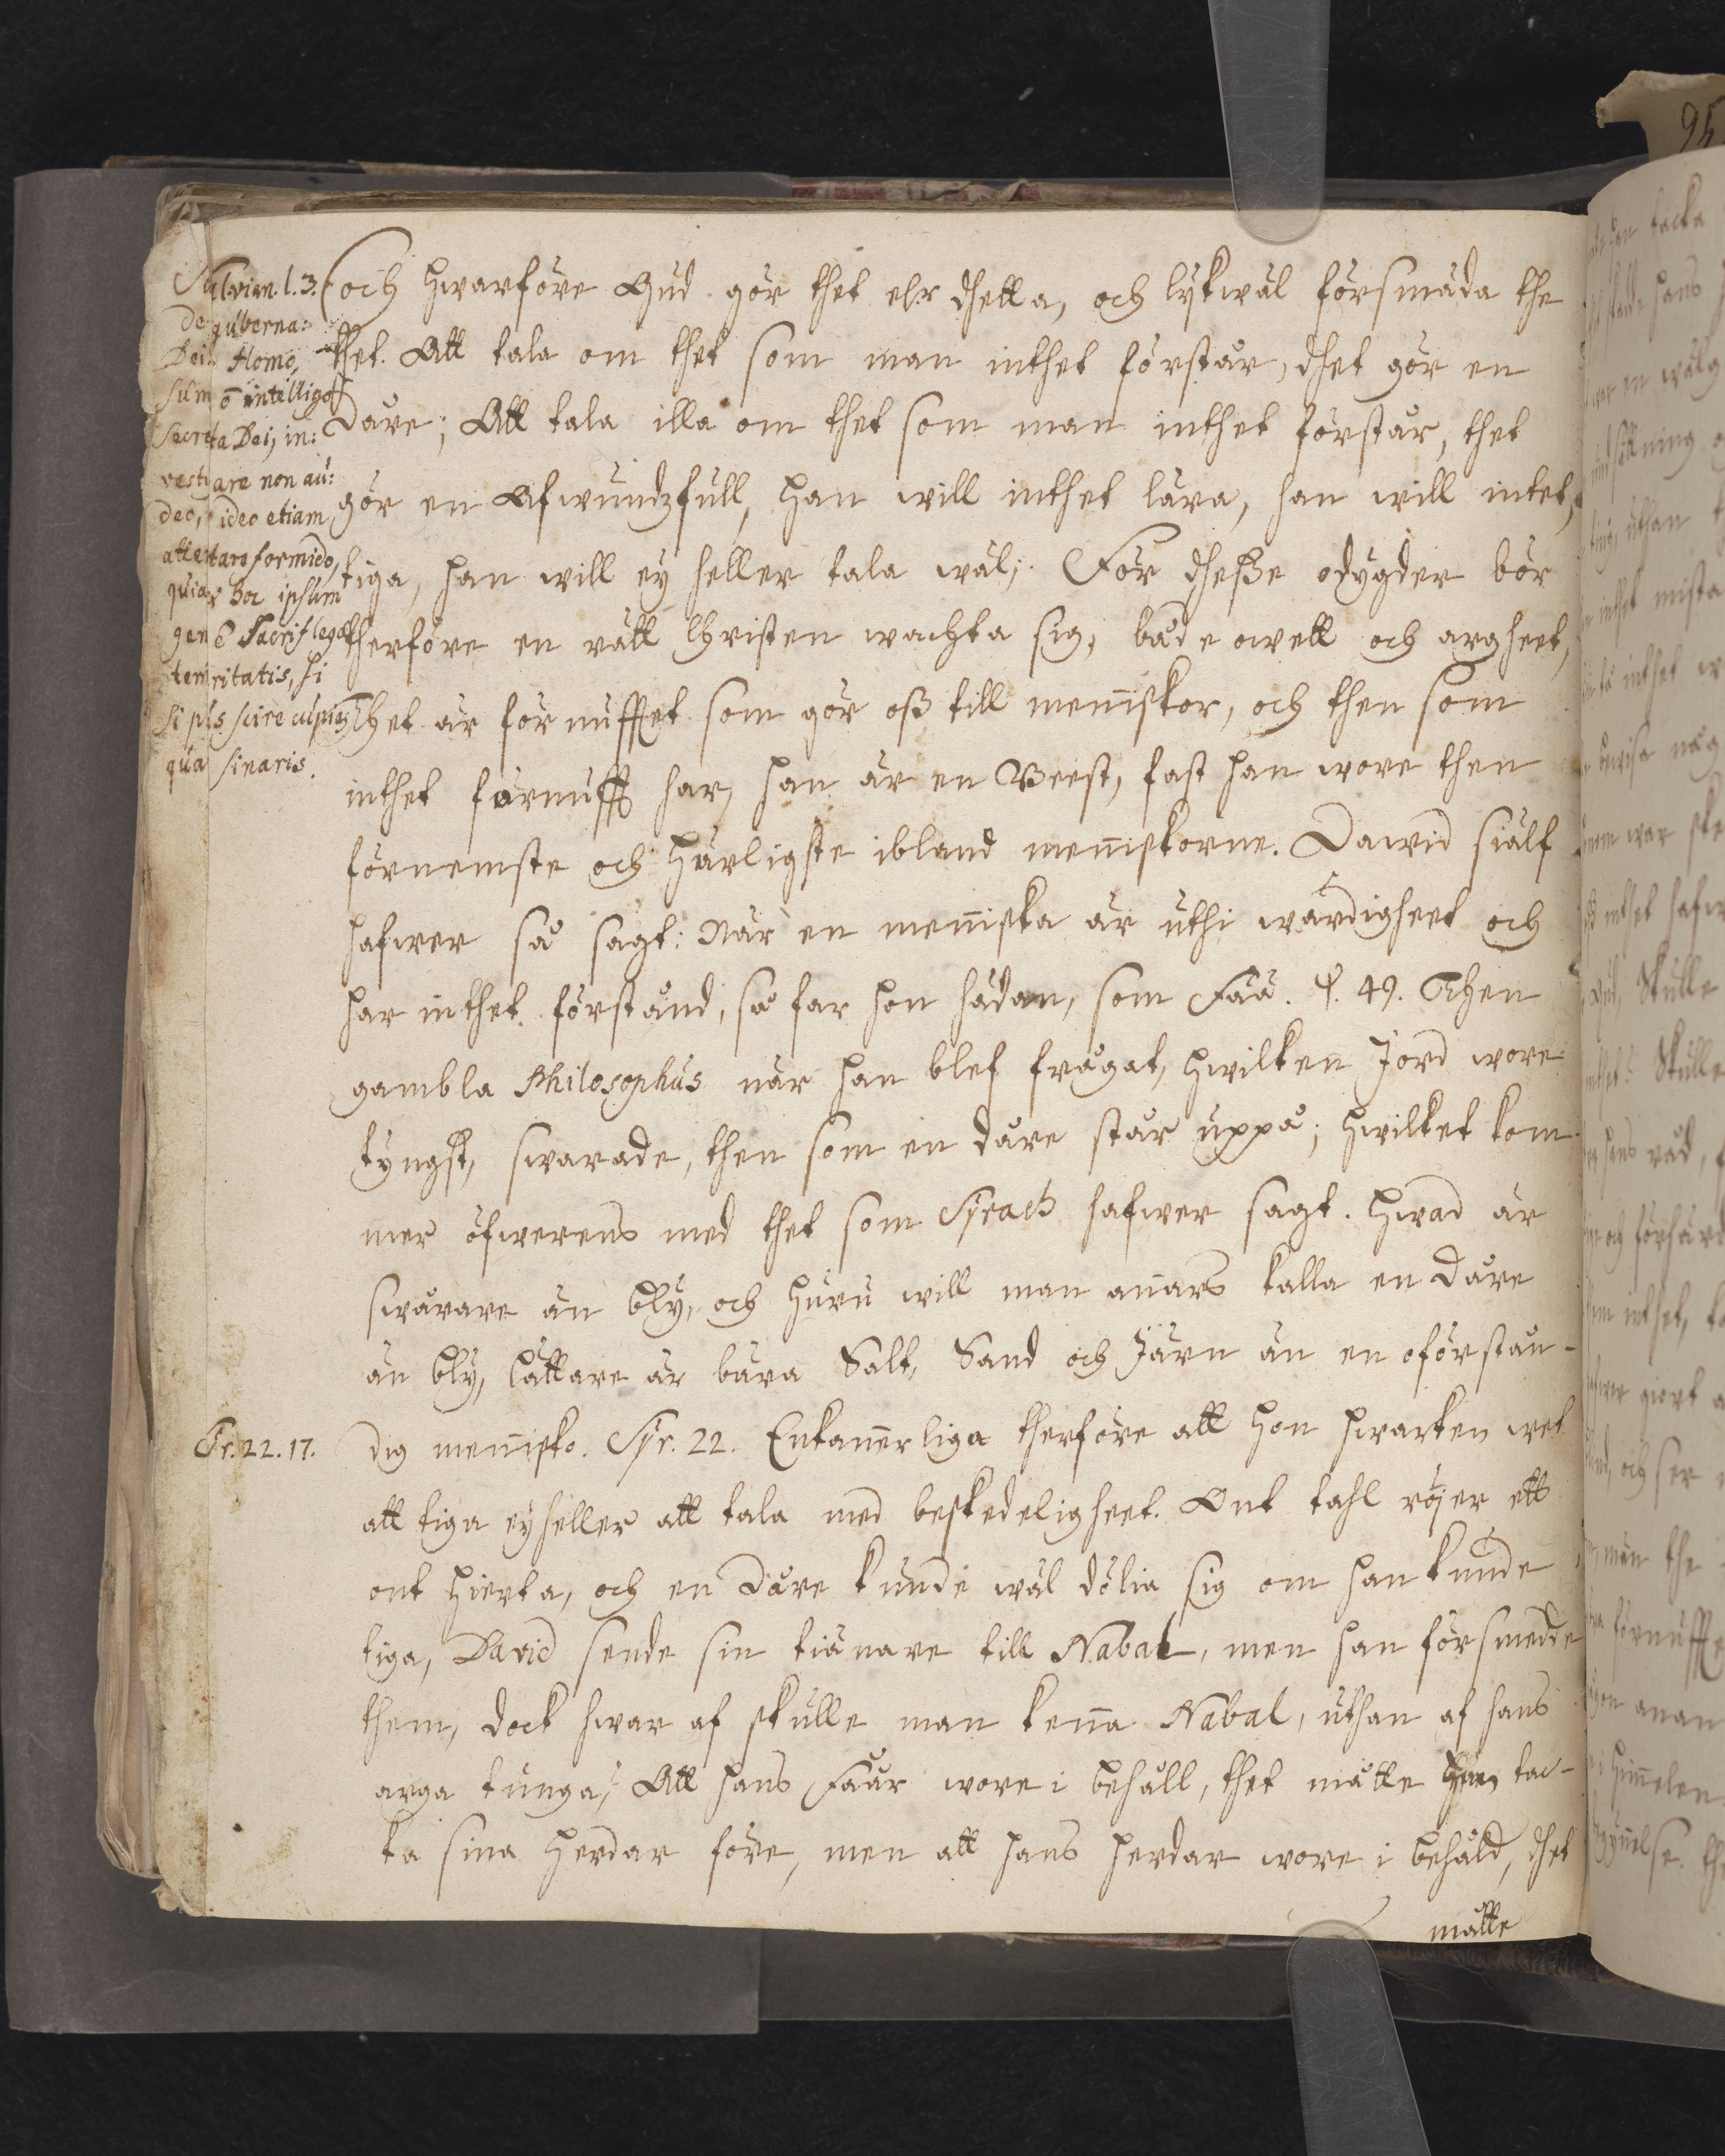 Salvian. l. 3.
de guberna:
Dei. Homo
sum ē intelligo
secreta Dei, in:
vestigare non au:
deo, ideo etiam
attentare formido,
quia & hoc ipsum
genē sacrilegæ
temeritatis, si
plus scire cupias
qua sinaris.
och hwarföre Gud gör thet elr dhetta, och lijkwäl försmäda the
thet. Att tala om thet som man inthet förstår, dhet gör en
Dåre; Att tala illa om thet som man inthet förstår, thet
gör en Afwundzfull, han will inthet lära, han will intet
tiga, han will ey heller tala wäl; För dheße odygder bör
therföre en rätt Christen wachta sig, både owett och argheet,
Thet är förnufftet som gör oß till menniskor, och then som
inthet förnufft har, han är en Beest, fast han wore then
förnemste och härligste ibland menniskorne. Dawid siälf
hafwer så sagt: När en menniska är uthi wärdigheet och
har inthet förstånd, så far hon hädan, som Fää. ψ. 49. Then
gambla Philosophus när han blef frågat, hwilken Jord wore
tyngst, swarade, then som en dåre står uppå; hwilket kom
mer öfwerens med thet som Syrach hafwer sagt. Hwad är
swårare än bly, och huru will man annars kalla en Dåre
än bly, lättare är bära Salt, Sand och Järn än en oförstån-
dig mennisko. Syr. 22. Enkannerliga therföre att hon hwarken wet
Sr. 22. 17.
att tiga eyheller att tala med beskedeligheet. Ont tahl röjer ett
ont hierta, och en Dåre kunde wäl dölia sig om han kunde
tiga, David sende sin tiänare till Nabal, men han försmedde
them, dock hwar af skulle man kenna Nabal, uthan af hans
arga tunga; Att hans Fåår wore i behåll, thet måtte han tac-
ka sina herdar före, men att hans herdar wore i behåld, dhet
måtte
95